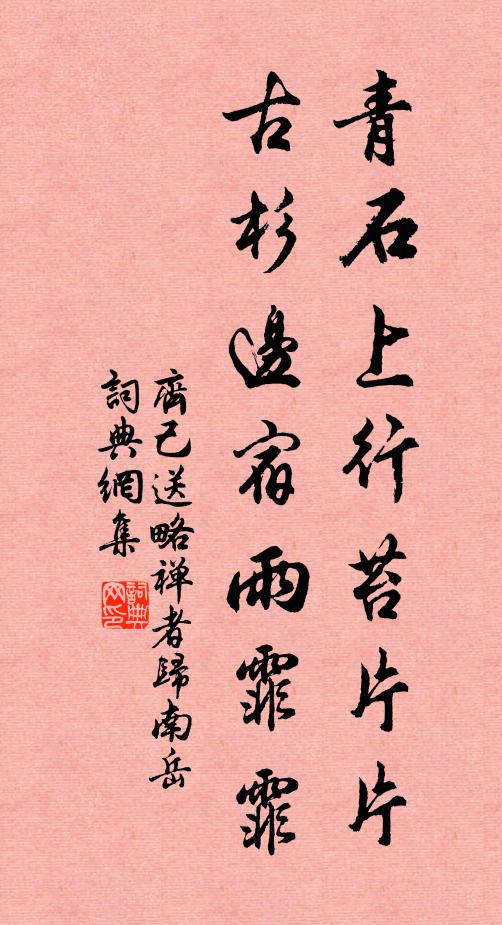 青石上行苔片片
古杉邊宿雨霏霏
齊己送略禅者歸南岳
詞典網集
詞典网印